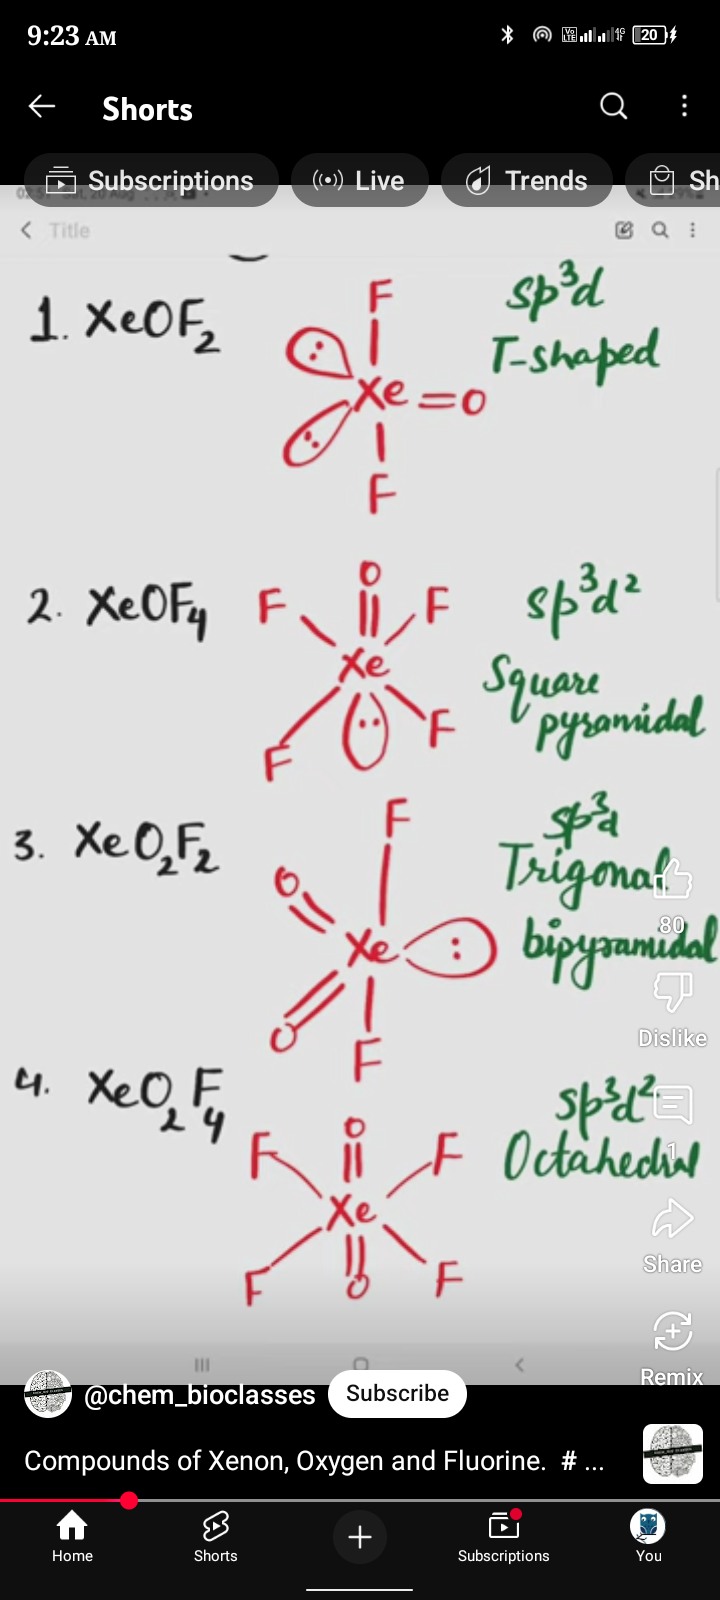 9:23 AM
Vo LTE 4G 20
Shorts
Subscriptions
Live
Trends
Sh
Title
1. XeOF₂
F
Xe =O
F
sp³d
T-shaped
2. XeOF₄
O
F F
Xe
F F
sp³d²
Square
pyramidal
3. XeO₂F₂
F
O
Xe
O
F
sp³d
Trigonal
bipyramidal
80
Dislike
4. XeO₂F₄
O
F F
Xe
F F
O
sp³d²
Octahedral
1
Share
Remix
@chem_bioclasses
Subscribe
Compounds of Xenon, Oxygen and Fluorine. # ...
Home
Shorts
Subscriptions
You